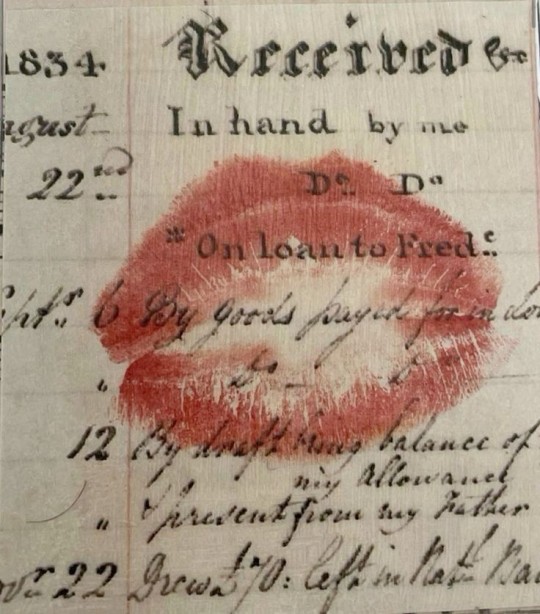 1834 Received &c
August In hand by me
22nd Do. Do
* On loan to Fredc.
Septr 6 By goods payed for in Lon
" Do - Do
12 By draft being balance of
my Allowance
" & present from my Father
Novr 22 Drew £70: left in Natl Ban